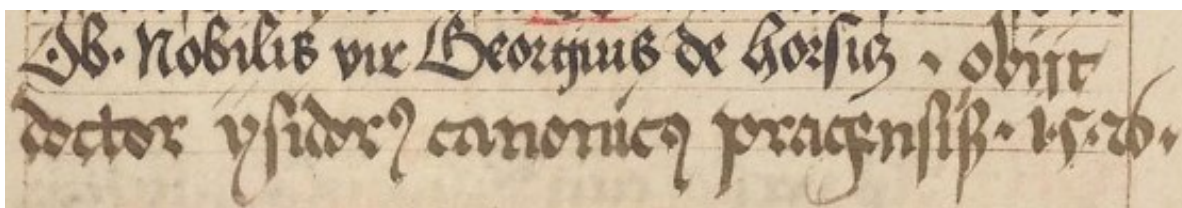 Ob. Nobilis vir Georgius de horsicz . obijt
doctor ysidorꝰ canonicꝰ pragensis . 1526 .